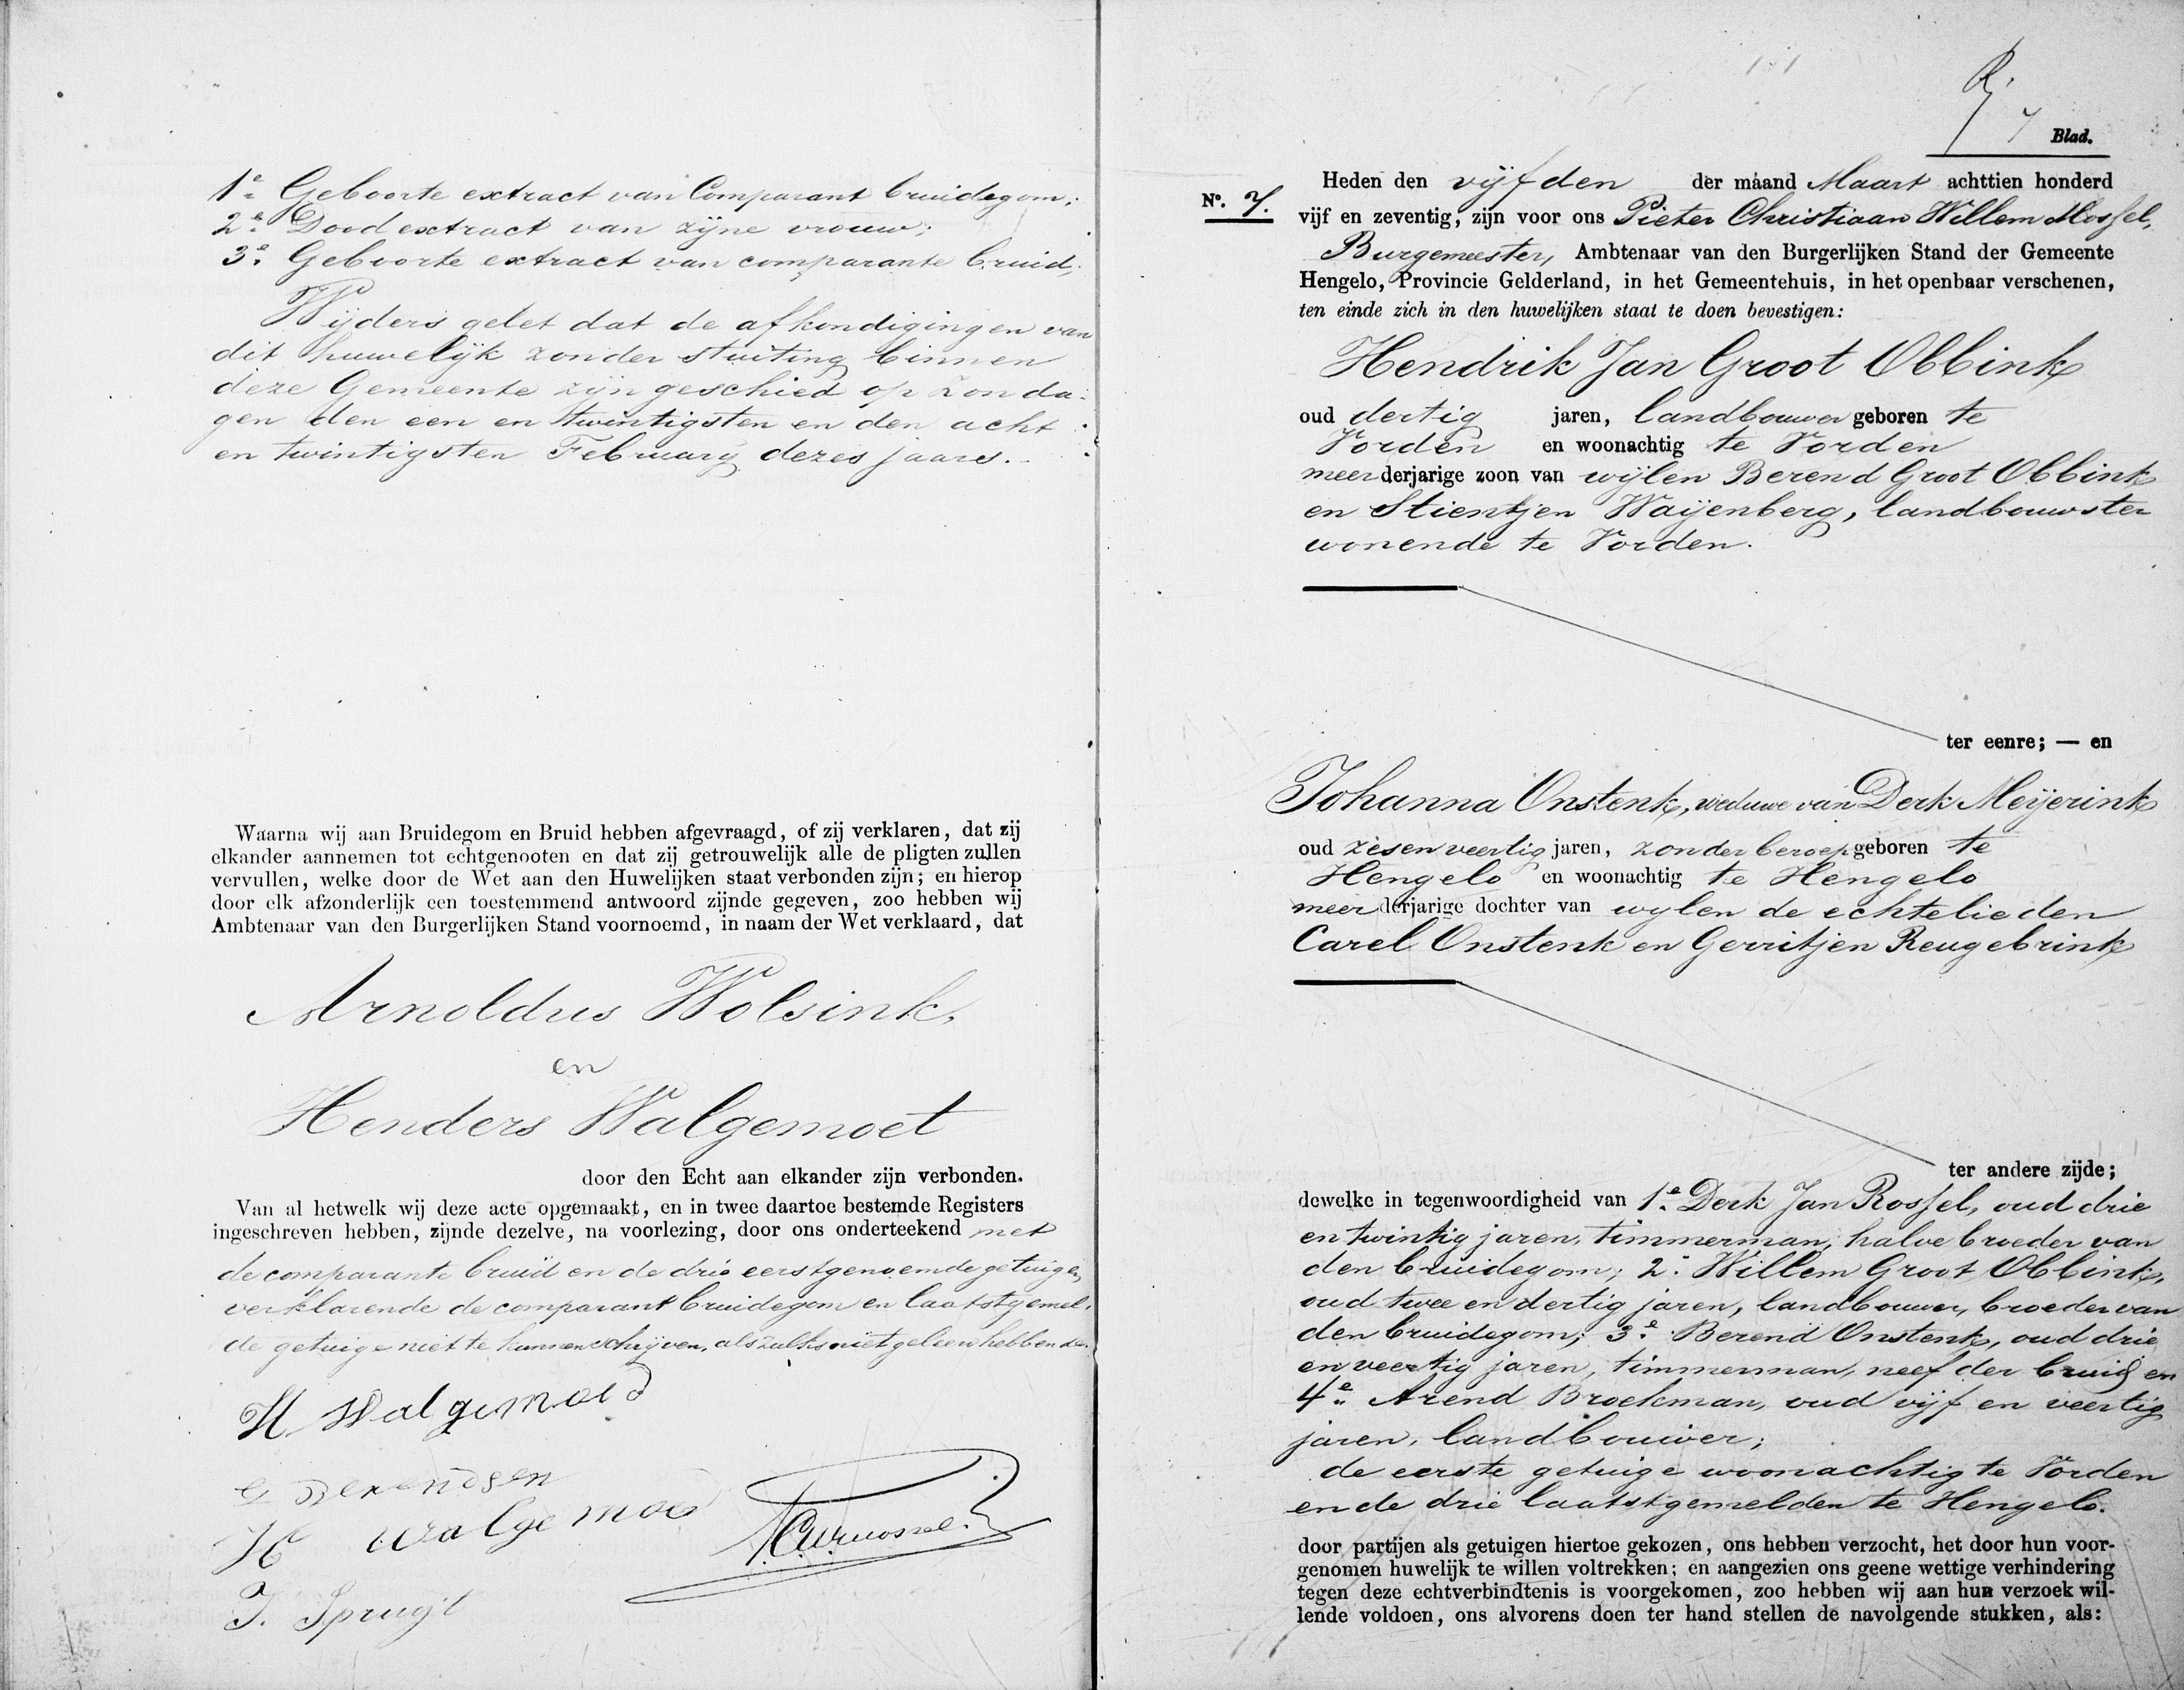 1e Geboorte extract van Comparant bruidegom;
2e Dood extract van zijne vrouw;
3e Geboorte extract van comparante bruid.
Wijders gelet dat de afkondigingen van
dit huwelijk zonder stuiting binnen
deze Gemeente zijn geschied op Zonda-
gen den een en twintigsten en den acht
en twintigsten February dezes jaars.
Waarna wij aan Bruidegom en Bruid hebben afgevraagd, of zij verklaren, dat zij
elkander aannemen tot echtgenooten en dat zij getrouwelijk alle de pligten zullen
vervullen, welke door de Wet aan den Huwelijken staat verbonden zijn; en hierop
door elk afzonderlijk een toestemmend antwoord zijnde gegeven, zoo hebben wij
Ambtenaar van den Burgerlijken Stand voornoemd, in naam der Wet verklaard, dat
Arnoldus Wolsink,
en
Henders Walgemoet
door den Echt aan elkander zijn verbonden.
Van al hetwelk wij deze acte opgemaakt, en in twee daartoe bestemde Registers
ingeschreven hebben, zijnde dezelve, na voorlezing, door ons onderteekend met
de comparante bruid en de drie eerstgenoemde getuigen,
verklarende de comparant bruidegom en laatstgemel-
de getuige niet te kunnen schrijven, als zulks niet geleerd hebbende.
H Walgemoed
G Berendsen
H walgemoed
J. Spruijt
Blad.
7
No. 7.
Heden den vijfden der maand Maart achttien honderd
vijf en zeventig, zijn voor ons Pieter Christiaan Willem Mossel,
Burgemeester, Ambtenaar van den Burgerlijken Stand der Gemeente
Hengelo, Provincie Gelderland, in het Gemeentehuis, in het openbaar verschenen,
ten einde zich in den huwelijken staat te doen bevestigen:
Hendrik Jan Groot Obbink
oud dertig jaren, landbouwer geboren te
Vorden en woonachtig te Vorden
meerderjarige zoon van wijlen Berend Groot Obbink
en Stientjen Waijenberg, landbouwster
wonende te Vorden.
ter eenre; — en
Johanna Onstenk, weduwe van Derk Meijerink
oud zesenveertig jaren, zonder beroep geboren te
Hengelo en woonachtig te Hengelo
meerderjarige dochter van wylen de echtelieden
Carel Onstenk en Gerritjen Reugebrink
ter andere zijde;
dewelke in tegenwoordigheid van 1e Derk Jan Rossel, oud drie
en twintig jaren, timmerman, halve broeder van
den bruidegom; 2e Willem Groot Obbink,
oud twee en dertig jaren, landbouwer, broeder van
den bruidegom; 3e Berend Onstenk, oud drie
en veertig jaren, timmerman, neef der bruid en
4e Arend Broekman, oud vijf en veertig
jaren, landbouwer;
de eerste getuige woonachtig te Vorden
en de drie laatstgemelden te Hengelo.
door partijen als getuigen hiertoe gekozen, ons hebben verzocht, het door hun voor-
genomen huwelijk te willen voltrekken; en aangezien ons geene wettige verhindering
tegen deze echtverbindtenis is voorgekomen, zoo hebben wij aan hun verzoek wil-
lende voldoen, ons alvorens doen ter hand stellen de navolgende stukken, als: